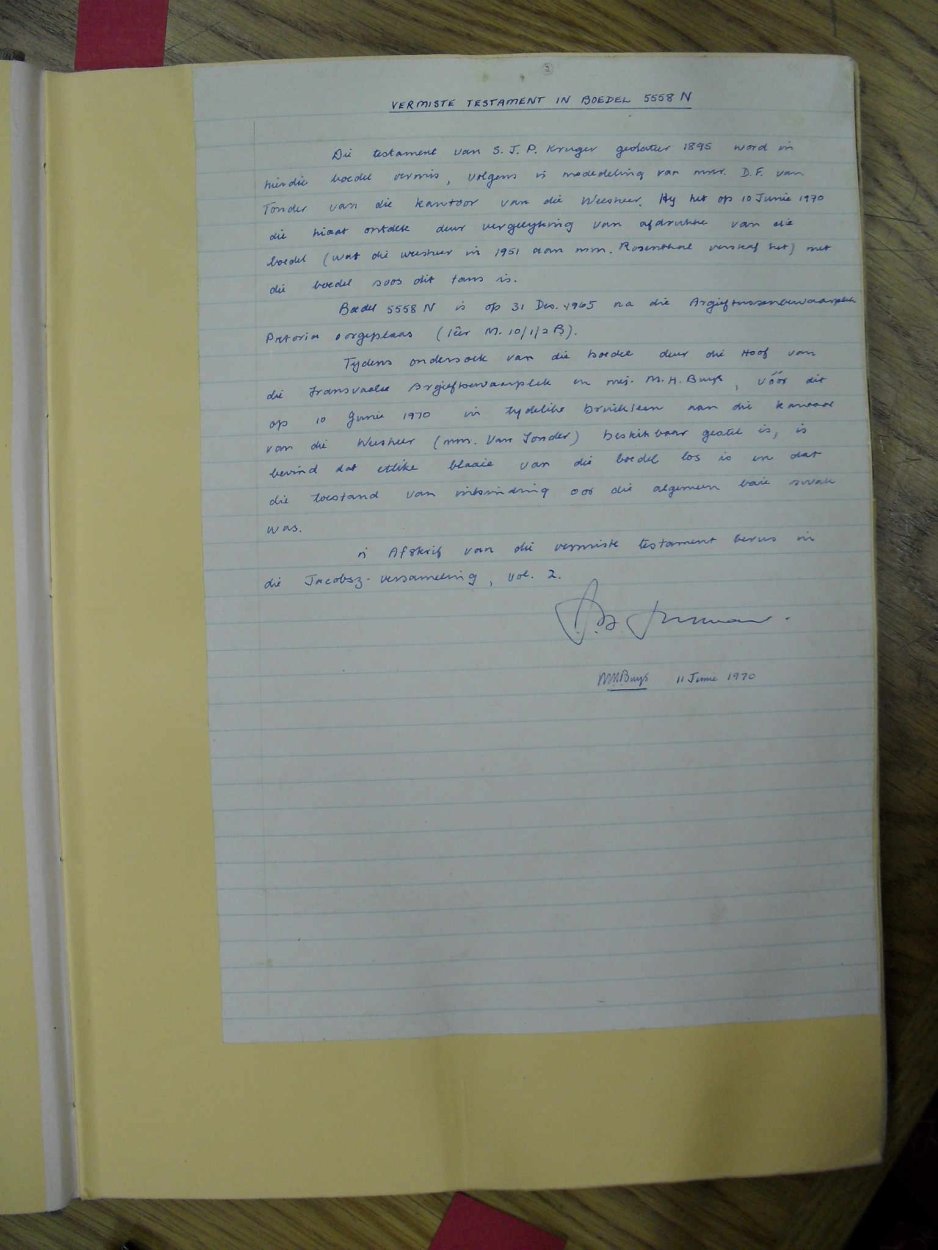 VERMISTE TESTAMENT IN BOEDEL 5558 N
Die testament van S.J.P. Kruger gedateer 1895 word in
hierdie boedel vermis, volgens 'n mededeling van mnr. D.F. van
Tonder van die kantoor van die Weesheer. Hy het op 10 Junie 1970
die hiaat ontdek deur vergelyking van afdrukke van die
boedel (wat die weesheer in 1951 aan mnr. Rosenthal verskaf het) met
die boedel soos dit tans is.
Boedel 5558 N is op 31 Des. 1965 na die Argieftussenbewaarplek
Pretoria oorgeplaas (lêer M. 10/1/2B).
Tydens ondersoek van die boedel deur die Hoof van
die Transvaalse Argiefbewaarplek en mej. M.H. Buys, vóór dit
op 10 Junie 1970 in tydelike bruikleen aan die kantoor
van die Weesheer (mnr. Van Tonder) beskikbaar gestel is, is
bevind dat etlike blaaie van die boedel los is en dat
die toestand van inbinding oor die algemeen baie swak
was.
'n Afskrif van die vermiste testament berus in
die Jacobsz-versameling, vol. 2.
MHBuys 11 Junie 1970